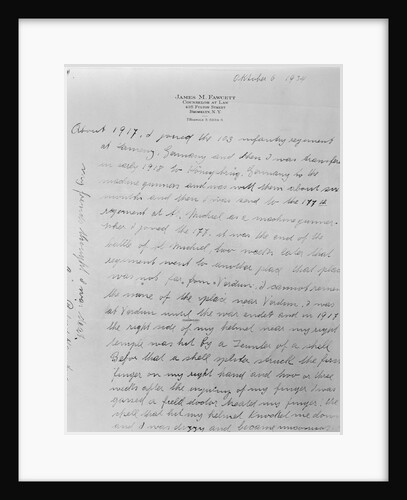 October 6 1934
JAMES M. FAWCETT
COUNSELOR AT LAW
BROOKLYN, N. Y.
About 1917, I joined the 103 infantry regiment
at Germany and then I was transfer
in early 1918 to Königsbrück, Germany to the
machine gunners and was with them about six
months and then I was send to the 177th
regiment at St. Michiel as a machine gunner.
When I joined the 177. it was the end of the
battle of St Michiel, two weeks later that
regiment went to another place that place
was not far from Verdun. I cannot remember
the name of the place, near Verdun. I was
at Verdun until the war endet and in 1918
the right side of my helmet near my right
temple was hit by a of a shell
Befor that a shell splinter struck the fore
finger on my right hand and two or three
weeks after the injuring of my finger I was
a field doctor treated my finger. The
shell that hit my helmet, knocked me down
and I was dizzy and became unconscious